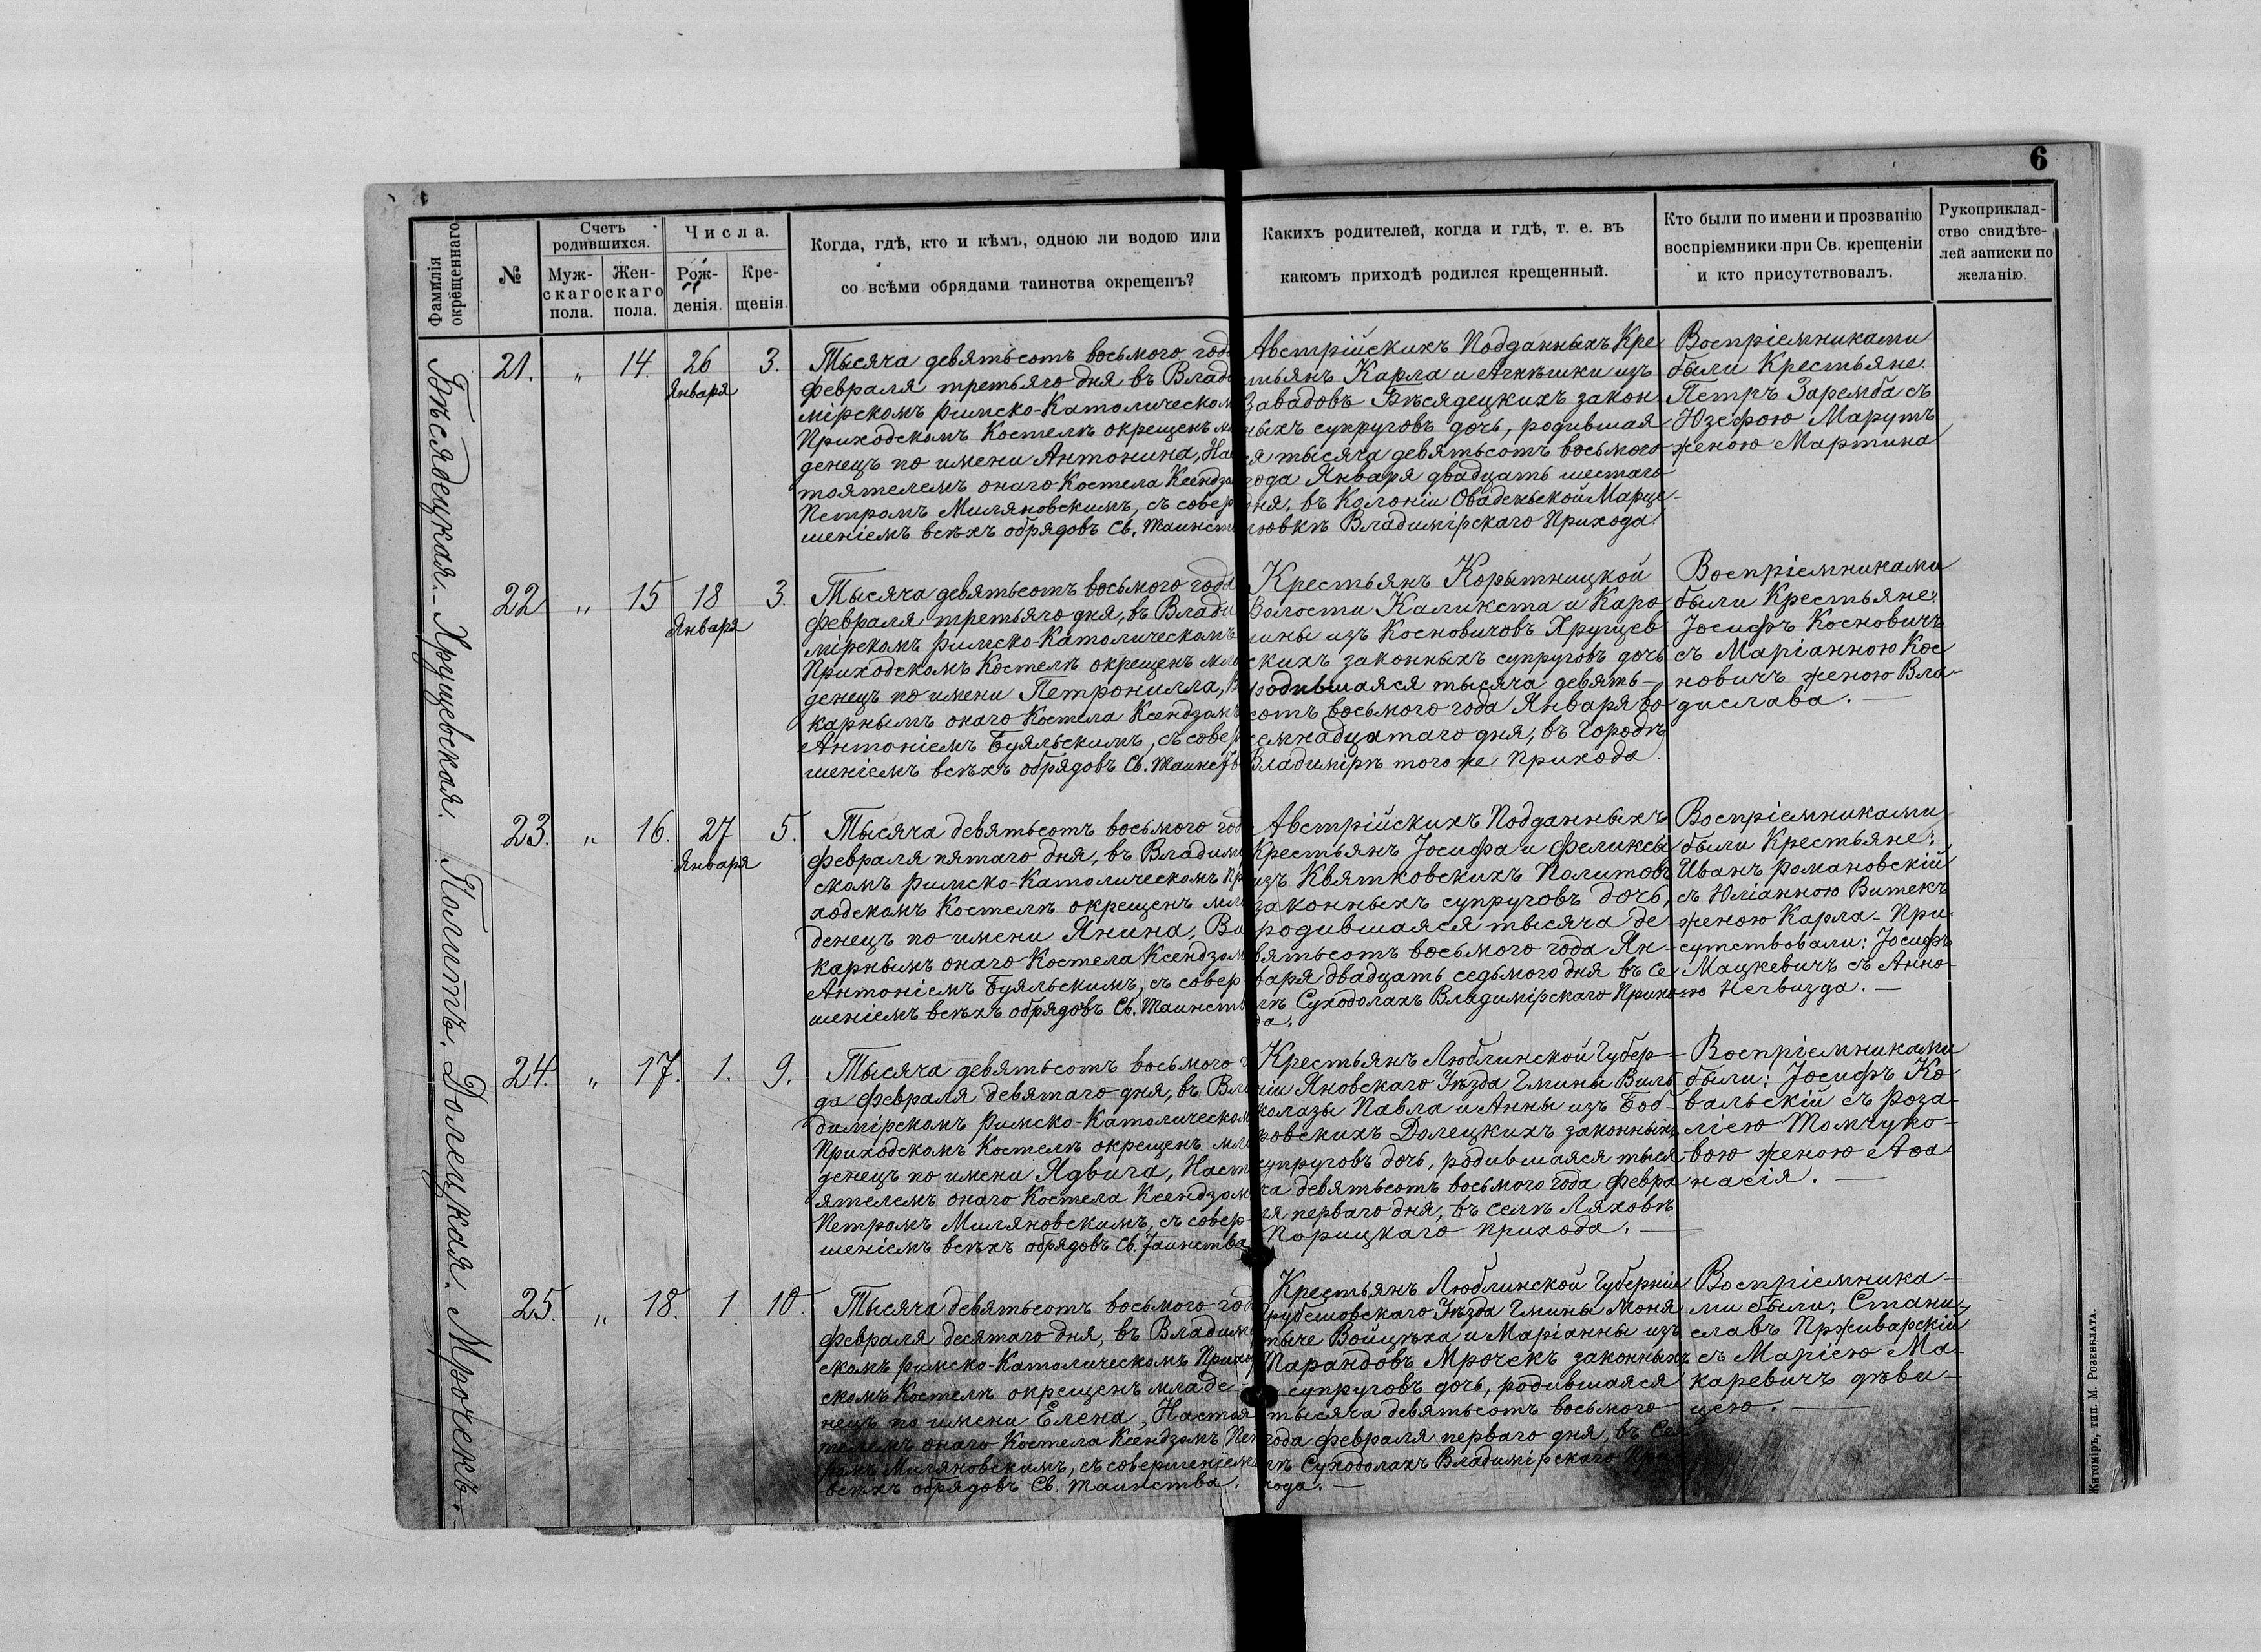 6
Фамилія окрещеннаго
№
Счетъ родившихся.
Мужскаго пола.
Женскаго пола.
Числа.
Рожденія.
Крещенія.
Когда, гдѣ, кто и кѣмъ, одною ли водою или
со всѣми обрядами таинства окрещенъ?
Какихъ родителей, когда и гдѣ, т. е. въ
какомъ приходѣ родился крещенный.
Кто были по имени и прозванію
воспріемники при Св. крещеніи
и кто присутствовалъ.
Рукоприклад-
ство свидѣте-
лей записки по
желанію.
Бѣсядецкая.
21. „ 14. 26 Января 3.
Тысяча девятьсотъ восьмого года
февраля третьяго дня въ Влади
мірскомъ римско-Католическом
Приходскомъ Костелѣ окрещенъ м
денецъ по имени Антонина, На
тоятелемъ онаго Костела Ксендзом
Петромъ Миляновскимъ, съ совер
шеніемъ всѣхъ обрядовъ Св. Таинст
Австрійскихъ Подданныхъ Кре
стьянъ Карла и Агнѣшки изъ
Завадовъ Бѣсядецкихъ закон
ныхъ супруговъ дочь, родившая
ся тысяча девятьсотъ восьмого
года Января двадцать шестаго
дня, въ Колоніи Оваденьской Марце-
ловкѣ Владимірскаго Прихода.
Воспріемниками
были Крестьяне:
Петръ Заремба съ
Юзефою Марутъ
женою Мартина
Хрущевская.
22 „ 15 18 Января 3.
Тысяча девятьсотъ восьмого года
февраля третьяго дня, въ Влади
мірскомъ римско-Католическомъ
Приходскомъ Костелѣ окрещенъ мла
денецъ по имени Петронилла, В
карнымъ онаго Костела Ксендзомъ
Антоніемъ Буяльскимъ, съ совер
шеніемъ всѣхъ обрядовъ Св. Таинств
Крестьянъ Корытницкой
Волости Каликста и Каро
лины изъ Косновичовъ Хрущев
скихъ законныхъ супруговъ дочь
родившаяся тысяча девять-
сотъ восьмого года Января во
семнадцатаго дня, въ Городѣ
Владимірѣ того же Прихода.
Воспріемниками
были Крестьяне:
Іосифъ Косновичъ
съ Маріанною Кос
новичъ женою Вла
дислава. —
Политъ.
23. „ 16. 27 Января 5.
Тысяча девятьсотъ восьмого год
февраля пятаго дня, въ Владимі
скомъ римско-Католическомъ Пр
ходскомъ Костелѣ окрещенъ мла
денецъ по имени Янина, Ви
карнымъ онаго Костела Ксендзом
Антоніемъ Буяльскимъ, съ совер
шеніемъ всѣхъ обрядовъ Св. Таинств
Австрійскихъ Подданныхъ
Крестьянъ Іосифа и Феликсы
изъ Квятковскихъ Политовъ
законныхъ супруговъ дочь,
родившаяся тысяча де-
вятьсотъ восьмого года Ян-
варя двадцать седьмого дня въ Се
лѣ Суходолахъ Владимірскаго Прихо
да.
Воспріемниками
были Крестьяне:
Иванъ Романовскій
съ Юліанною Витекъ
женою Карла - При
сутствовали: Іосифъ
Мацкевичъ съ Анно-
ю Нечвизда. —
Долецкая.
24. „ 17. 1. 9.
Тысяча девятьсотъ восьмого г
да февраля девятаго дня, въ Вла
димірскомъ римско-Католическом
Приходскомъ Костелѣ окрещенъ мла
денецъ по имени Ядвига, Насто
ятелемъ онаго Костела Ксендзом
Петромъ Миляновскимъ, съ совер-
шеніемъ всѣхъ обрядовъ Св. Таинства
Крестьянъ Люблинской Губер-
ніи Яновскаго Уѣзда Гмины Виль-
колазы Павла и Анны изъ Боб-
ровскихъ Долецкихъ законныхъ
супруговъ дочь, родившаяся тыся
ча девятьсотъ восьмого года февра
ля перваго дня, въ селѣ Ляховѣ
Порицкаго прихода. —
Воспріемниками
были: Іосифъ Ко
вальскій съ Роза-
ліею Томчуко-
вою женою Аѳа
насія. —
Мрочекъ.
25. „ 18. 1. 10.
Тысяча девятьсотъ восьмого год
февраля десятаго дня, въ Владимі
скомъ римско-Католическомъ Приход
скомъ Костелѣ окрещенъ младе-
нецъ по имени Елена, Настоя
телемъ онаго Костела Ксендзомъ Пет
ромъ Миляновскимъ, съ совершеніем
всѣхъ обрядовъ Св. Таинства.
Крестьянъ Люблинской Губерніи
Грубешовскаго Уѣзда Гмины Моня
тыче Войцѣха и Маріанны изъ
Тарандовъ Мрочекъ законныхъ
супруговъ дочь, родившаяся
тысяча девятьсотъ восьмого
года февраля перваго дня, въ Се
лѣ Суходолахъ Владимірскаго При
хода. —
Воспріемника-
ми были: Стани
славъ Прживарскій
съ Маріею Ма-
каревичъ дѣви-
цею. —
Житоміръ, тип. М. Розенблата.